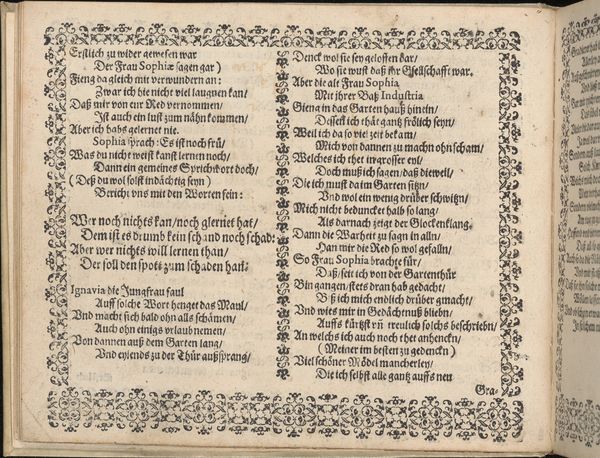 Erstlich zu wider gewesen war
Der Frau Sophiæ sagen gar)
Fieng da gleich mit verwundern an:
Zwar ich hie nicht viel laugnen kan/
Daß wir von eur Red vernommen/
Ist auch ein lust zum nähn kommen/
Aber ich habs gelernet nie.
Sophia sprach: Es ist noch frü/
Was du nicht weist kanst lernen noch/
Dann ein gemeines Sprichwort doch/
(Deß du wol solst indächtig seyn)
Bericht uns mit den Worten sein:
Wer noch nichts kan/noch glernet hat/
Dem ist es drumb kein schand noch schad:
Aber wer nichts will lernen than/
Der soll den spott zum schaden han.
Ignavia die Jungfrau faul
Auff solche Wort henget das Maul/
Vnd macht sich bald ohn alls schämen/
Auch ohn einigs urlaub nemen/
Von dannen auß dem Garten lang/
Vnd eylends zu der Thür außsprang/
Denck wol sie sey geloffen dar/
Wo sie wust daß ihr Gsellschafft war.
Aber die alt Frau Sophia
Mit ihrer Baß Industria
Gieng in das Garten hauß hinein/
Dessen ich thät gantz frölich seyn/
Weil ich da so viel zeit bekam/
Mich von dannen zu machn ohn scham/
Welches ich thet in grosser eyl/
Doch muß ich sagen/daß diewell/
Die ich must da im Garten sitzn/
Vnd wol ein wenig drüber schwitzn/
Mich nicht beduncket halb so lang/
Als darnach zeigt der Glockenklang.
Dann die Warheit zu sagn in alln/
Han mir die Red so wol gefalln/
So Frau Sophia brachte für/
Daß/seit ich von der Gartenthür
Bin gangen/stets dran hab gedacht/
Biß ich mich endlich drüber gmacht/
Vnd wies mir in Gedächtnuß bliebn/
Auffs kürtzst uñ treulich solchs beschriebn/
An welchs ich auch noch thet anhenckn/
(Meiner im besten zu gedenckn)
Viel schöner Mödel mancherley/
Die ich selbst alle gantz auffs neu
Gra-